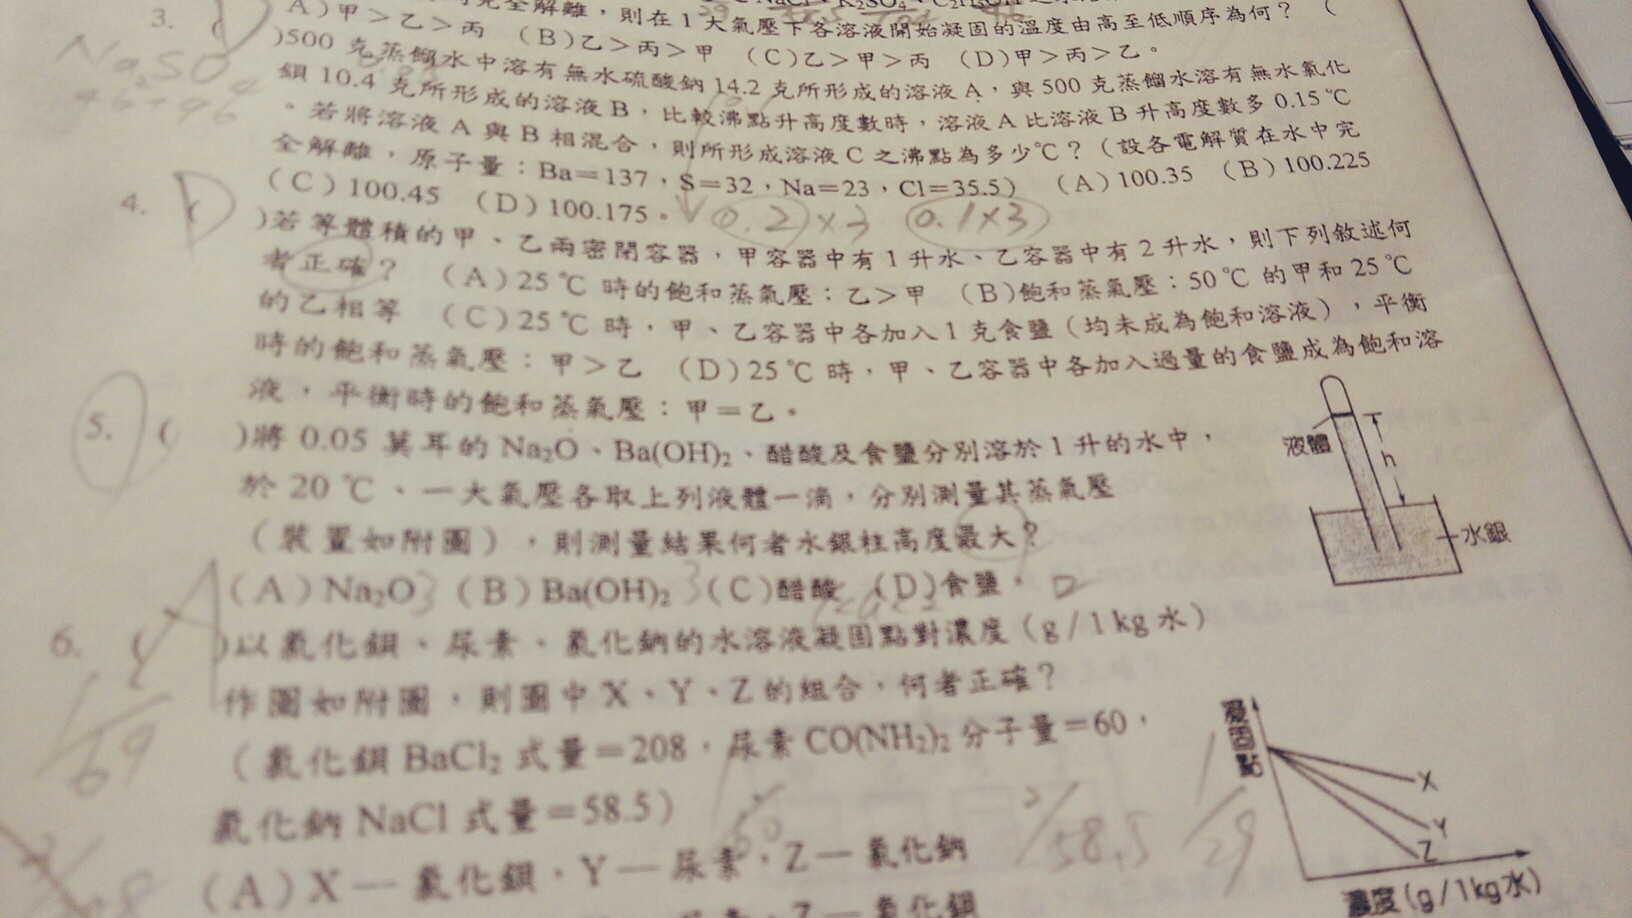 3. (
完全解離，則在1大氣壓下各溶液開始凝固的溫度由高至低順序為何？ (
A)甲＞乙＞丙 (B)乙＞丙＞甲 (C)乙＞甲＞丙 (D)甲＞丙＞乙。
)500 克蒸餾水中溶有無水硫酸鈉 14.2 克所形成的溶液 A，與 500 克蒸餾水溶有無水氯化
鋇 10.4 克所形成的溶液 B，比較沸點升高度數時，溶液 A 比溶液 B 升高度數多 0.15 ℃
。若將溶液 A 與 B 相混合，則所形成溶液 C 之沸點為多少℃？（設各電解質在水中完
全解離，原子量：Ba＝137，S＝32，Na＝23，Cl＝35.5） (A)100.35 (B)100.225
(C)100.45 (D)100.175。
Na2SO4
46+96
D
0.2×3 0.1×3
4. ( )若等體積的甲、乙兩密閉容器，甲容器中有 1 升水、乙容器中有 2 升水，則下列敘述何
者正確？ (A)25 ℃ 時的飽和蒸氣壓：乙＞甲 (B)飽和蒸氣壓：50 ℃ 的甲和 25 ℃
的乙相等 (C)25 ℃ 時，甲、乙容器中各加入 1 克食鹽（均未成為飽和溶液），平衡
時的飽和蒸氣壓：甲＞乙 (D)25 ℃ 時，甲、乙容器中各加入過量的食鹽成為飽和溶
液，平衡時的飽和蒸氣壓：甲＝乙。
5. ( )將 0.05 莫耳的 Na₂O、Ba(OH)₂、醋酸及食鹽分別溶於 1 升的水中，
於 20 ℃、一大氣壓各取上列液體一滴，分別測量其蒸氣壓
（裝置如附圖），則測量結果何者水銀柱高度最大？
(A)Na₂O 3 (B)Ba(OH)₂ 3 (C)醋酸 (D)食鹽。 2
液體
h
水銀
A
6. ( )以氯化鋇、尿素、氯化鈉的水溶液凝固點對濃度（g/1 kg 水）
作圖如附圖，則圖中 X、Y、Z 的組合，何者正確？
（氯化鋇 BaCl₂ 式量＝208，尿素 CO(NH₂)₂ 分子量＝60，
氯化鈉 NaCl 式量＝58.5）
(A)X—氯化鋇，Y—尿素，Z—氯化鈉
尿素，Z—氯化鋇
1/69
1/60
2/58.5
1/29
凝固點
X
Y
Z
濃度(g/1kg水)